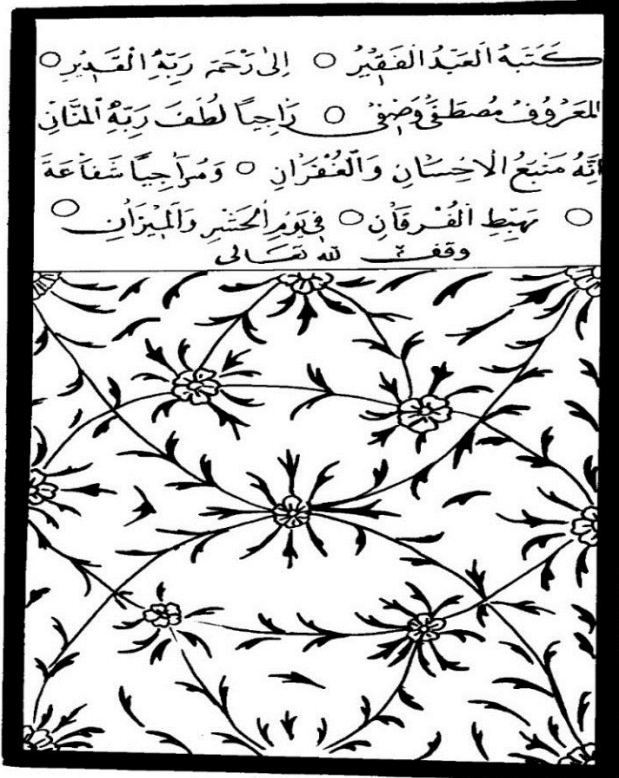 كَتَبَهُ الْعَبْدُ الْفَقِيْرُ ○ اِلٰى رَحْمَةِ رَبِّهِ الْقَدِيْرِ ○
الْمَعْرُوفُ مُصْطَفٰى وَصْفِى ○ رَاجِياً لُطْفَ رَبِّهِ الْمَنَّانِ
اِنَّهُ مَنْبَعُ الْاِحْسَانِ وَالْغُفْرَانِ ○ وَمُرَاجِياً شَفَاعَةَ
○ مَهْبِطِ الْفُرْقَانِ ○ فِى يَوْمِ الْحَشْرِ وَالْمِيْزَانِ ○
وقف لله تعالى